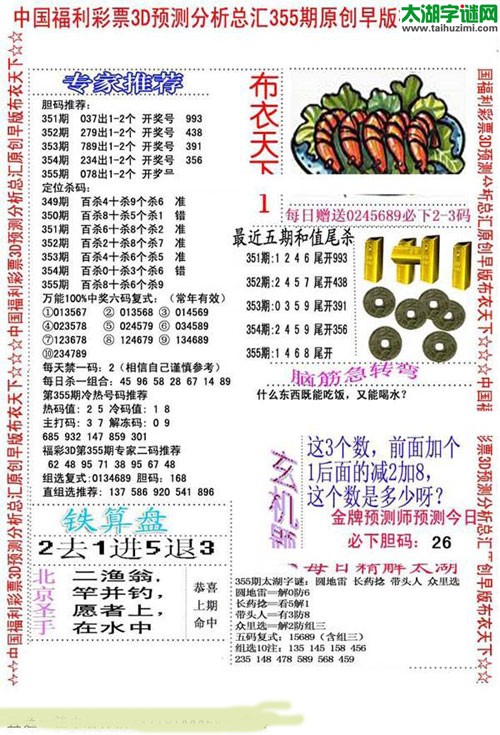 中国福利彩票3D预测分析总汇355期原创早版
太湖字谜网
www.taihuzimi.com
专家推荐
胆码推荐:
351期 037出1-2个 开奖号 993
352期 279出1-2个 开奖号 438
353期 789出1-2个 开奖号 391
354期 234出1-2个 开奖号 356
355期 078出1-2个
定位杀码:
349期 百杀4十杀9个杀6 准
350期 百杀8十杀5个杀1 错
351期 百杀6十杀8个杀2 准
352期 百杀2十杀7个杀5 准
353期 百杀1十杀4个杀6 准
354期 百杀0十杀3个杀6 错
355期 百杀8十杀6个杀9
万能100%中奖六码复式: (常年有效)
①013567 ②013568 ③014569
④023578 ⑤024579 ⑥034589
⑦123678 ⑧124679 ⑨134689
⑩234789
每天禁一码: 2 (相信自己谨慎参考)
每日杀一组合: 45 96 58 28 67 14 89
第355期冷热号码推荐
热码值: 2 5 冷码值: 1 8
主打码: 3 7 解冻码: 0 9
685 932 147 859 301
福彩3D第355期专家二码推荐
62 48 95 71 38 95 67 48
组选复式: 0134689 胆码: 168
直组选推荐: 137 586 920 541 896
铁算盘
2去1进5退3
北京圣手
二渔翁,
竿并钓,
愿者上,
在水中
恭喜
上期
命中
布衣天下
1
每日赠送0245689必下2-3码
最近五期和值尾杀
351期:1 2 4 6 尾开993
352期:2 4 5 7 尾开438
353期:0 3 5 9 尾开391
354期:2 4 5 9 尾开356
355期:1 4 6 8 尾开
脑筋急转弯
什么东西既能吃饭,又能喝水?
玄机
这3个数,前面加个
1后面的减2加8,
这个数是多少呀?
金牌预测师预测今日
必下胆码: 26
每日精解太湖
355期太湖字谜: 圆地雷 长药捻 带头人 众里选
圆地雷=解0防6
长药捻=看5解1
带头人=有3防8
众里选=解2防组三
五码复式: 15689 (含组三)
组选10注: 135 145 158 456
235 148 478 589 568 459